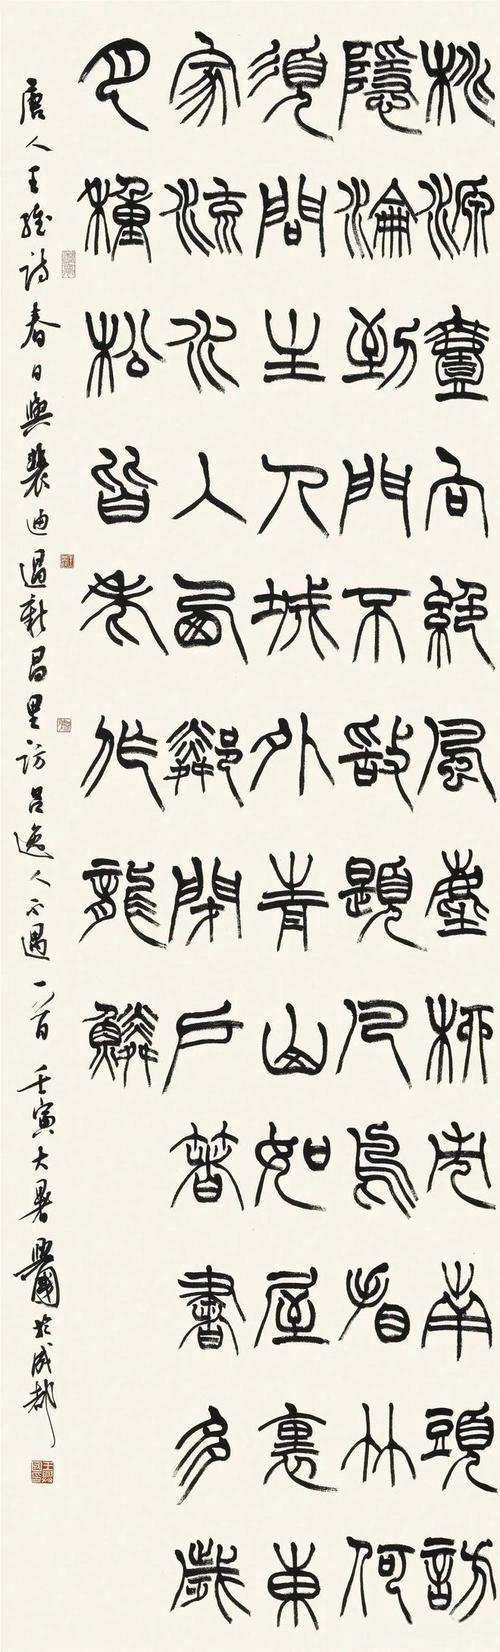 桃源壹向絕風塵柳市南頭訪
隱淪到門不敢題凡鳥看竹何
須問主人城外青山如屋裏東
家流水入西鄰閉戶著書多歲
月種松皆老作龍鱗
唐人王維詩春日與裴迪過新昌里訪呂逸人不遇一首 壬寅大暑興國於成都